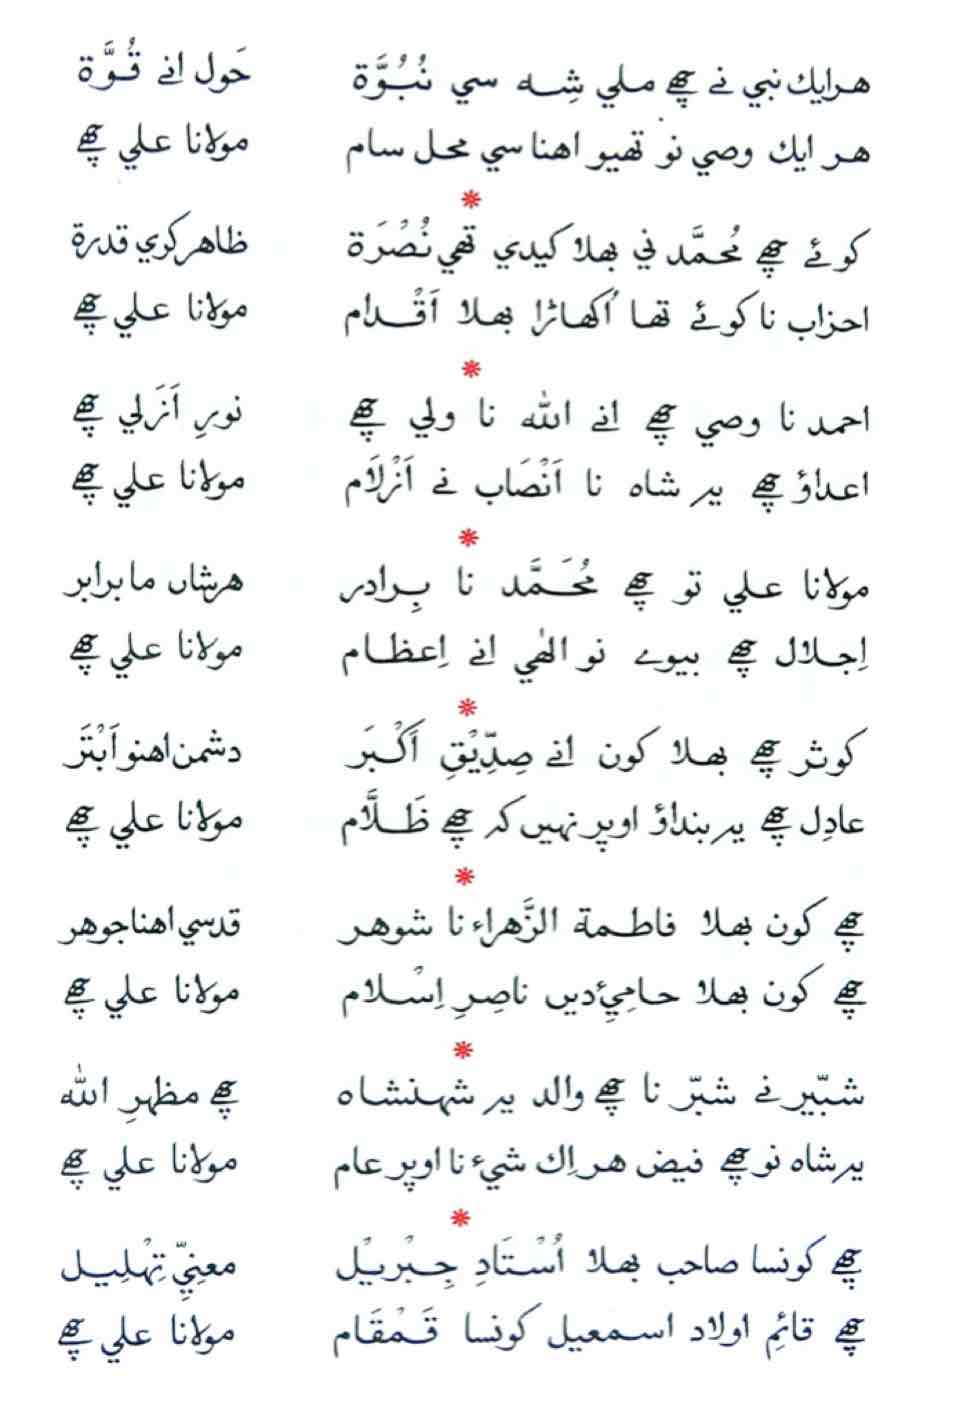 هرايك نبي نے چھے ملي شِہ سي نُبُوَّة حَول انے قُوَّة
هر ايك وصي نو تھيو اهنا سي محل سام مولانا علي چھے
كوئے چھے مُحمَّد ني بھلا كيدي تھي نُصْرَة ظاهر كري قدرة
احزاب نا كوئے تھا اُكھاڑا بھلا اَقْدام مولانا علي چھے
احمد نا وصي چھے انے الله نا ولي چھے نورِ اَزَلي چھے
اعداؤ چھے يہ شاه نا اَنْصَاب نے اَزْلَام مولانا علي چھے
مولانا علي تو چھے مُحَمَّد نا بِرادر هرشاں ما برابر
اِجلال چھے بيوے نو الٰهي انے اِعظام مولانا علي چھے
كوثر چھے بھلا كون انے صِدِّيْقِ اَكْبَر دشمن اهنو اَبْتَر
عادِل چھے يہ بنداؤ اوپر نہيں كہ چھے ظَلَّام مولانا علي چھے
چھے كون بھلا فاطمة الزَّهراء نا شوهر قدسي اهنا جوهر
چھے كون بھلا حامِئِ ديں ناصِرِ اِسْلام مولانا علي چھے
شبّير نے شبّر نا چھے والد يہ شہنشاه چھے مظهرِ الله
يہ شاه نو چھے فيض هر اِك شيء نا اوپر عام مولانا علي چھے
چھے كونسا صاحب بھلا اُسْتَادِ جِبْرِيْل معنِيِّ تِهْلِيل
چھے قائمِ اولاد اسمعيل كونسا قَمْقَام مولانا علي چھے